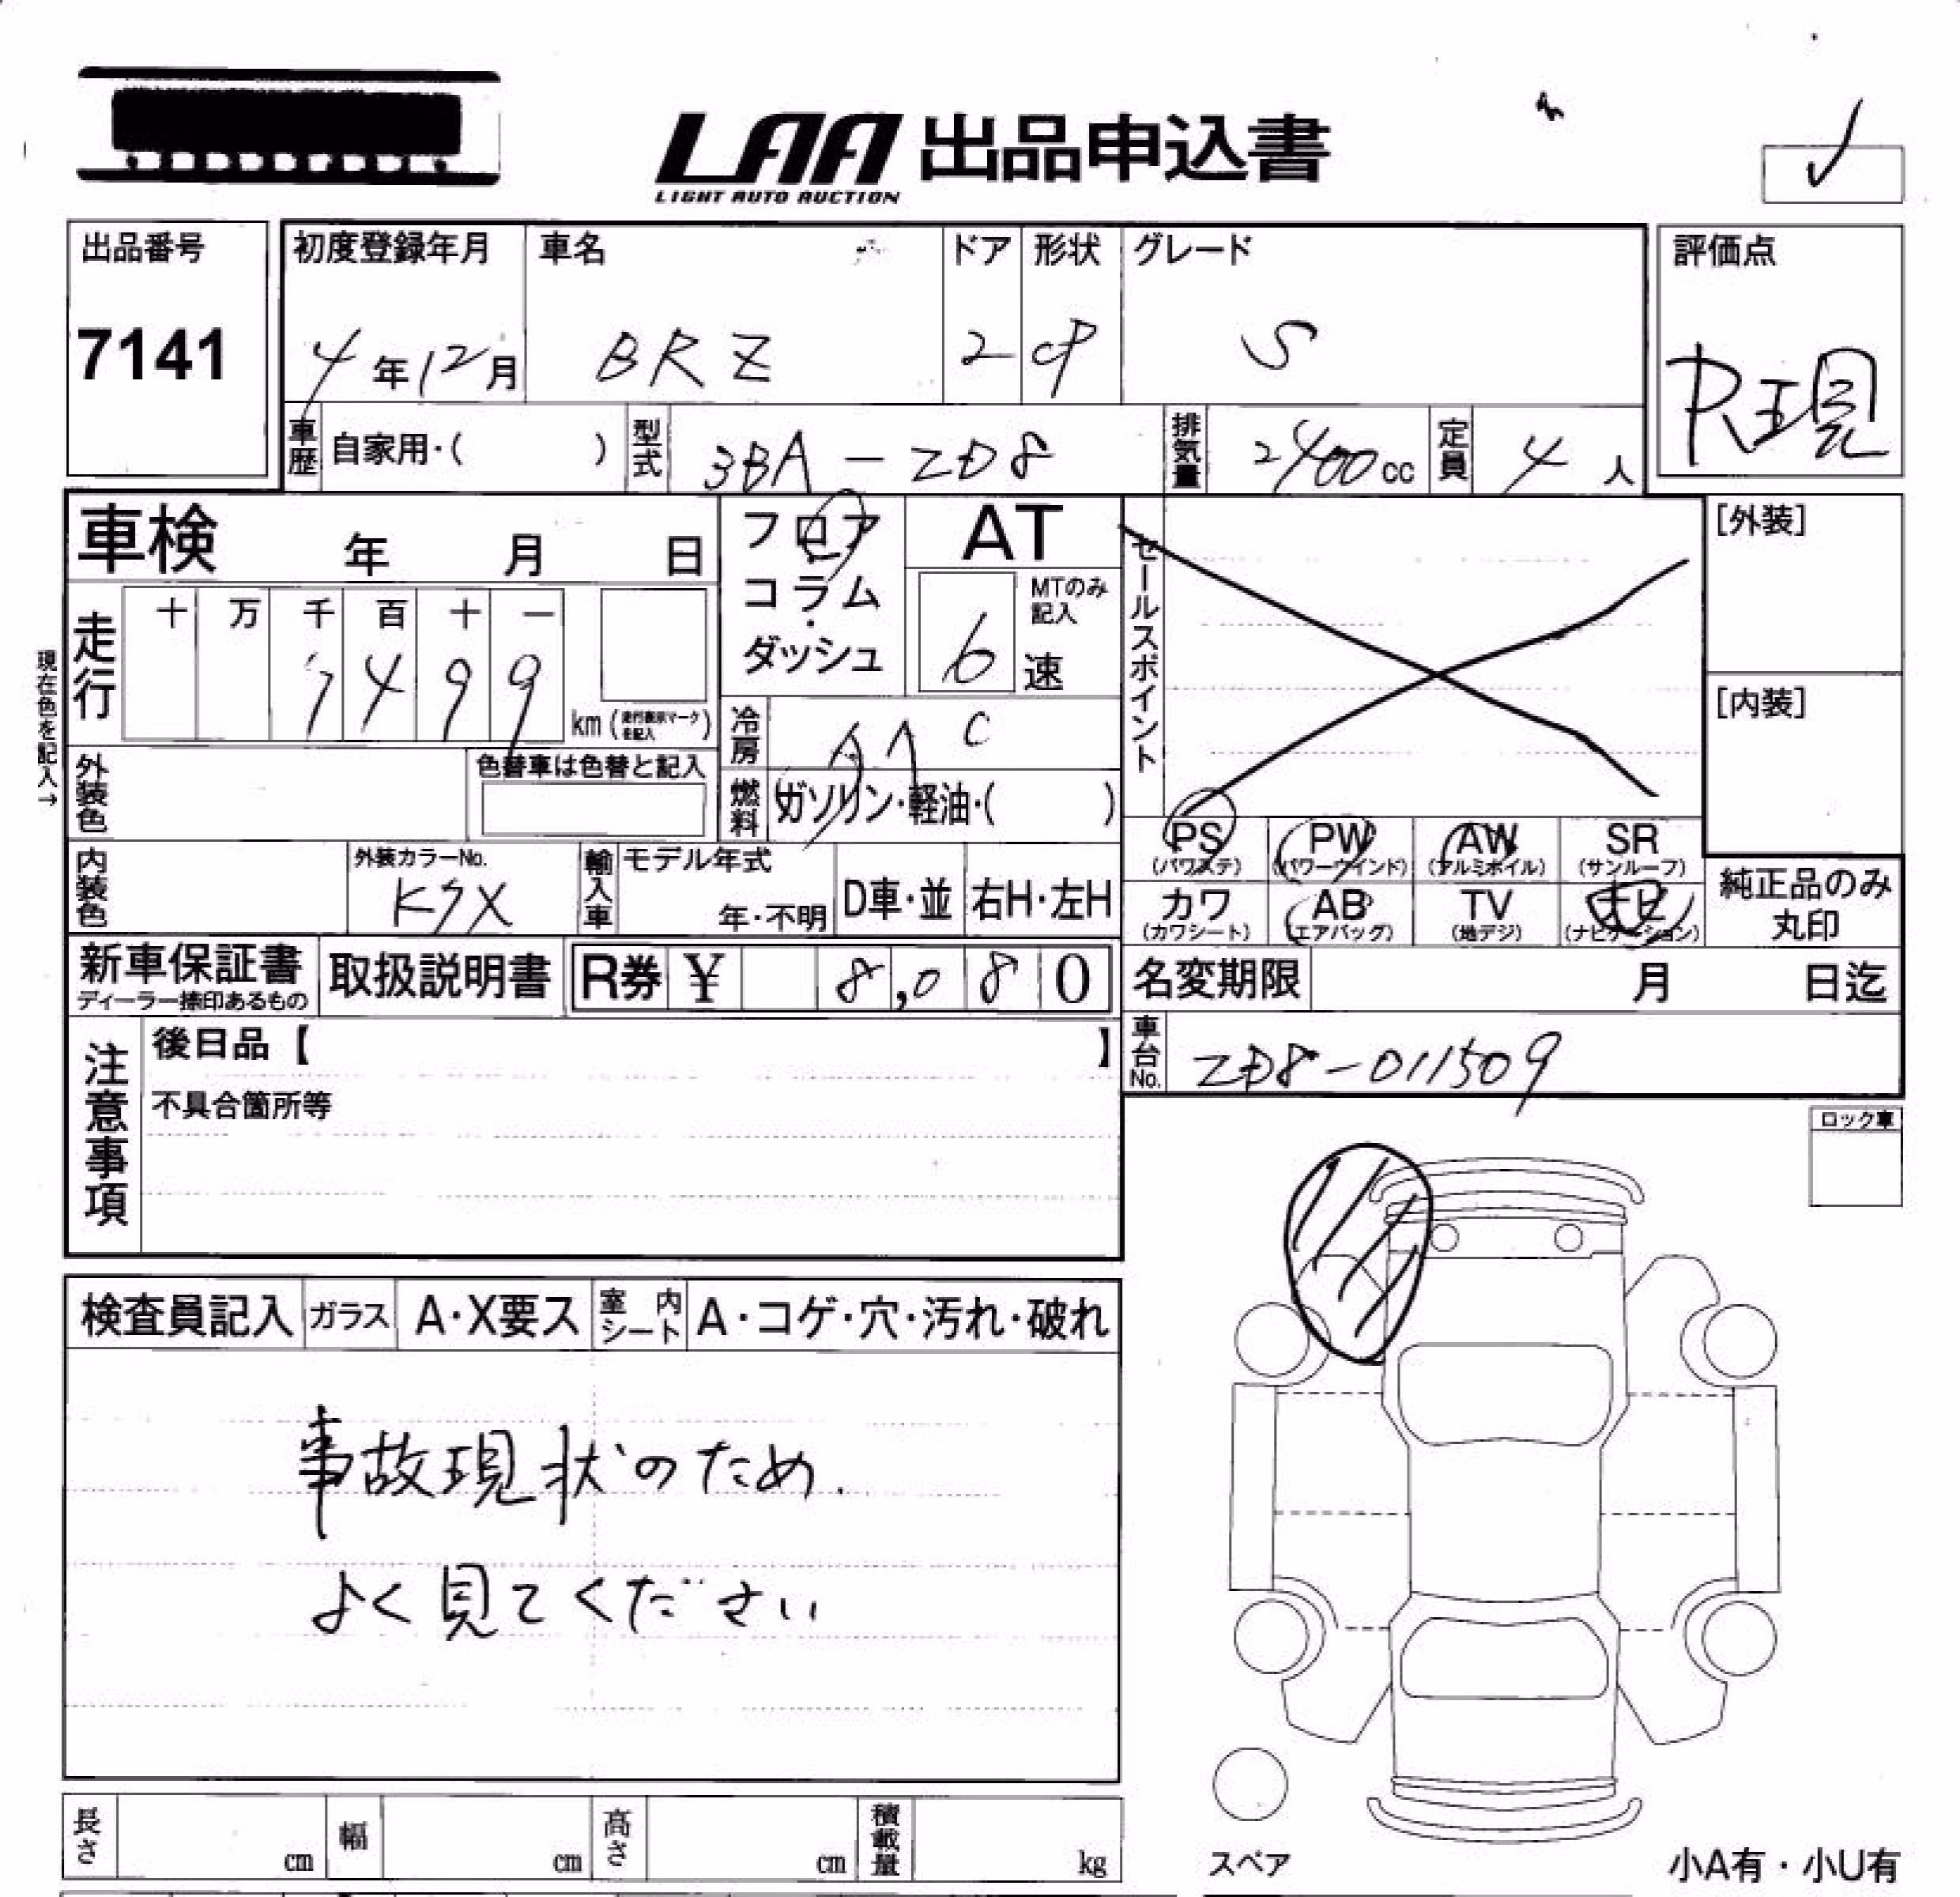 LAA 出品申込書
LIGHT AUTO AUCTION
出品番号
7141
初度登録年月
4年12月
車名
BRZ
ドア
2
形状
CP
グレード
S
評価点
R現
車歴
自家用・( )
型式
3BA-ZD8
排気量
2400cc
定員
4人
車検 年 月 日
フロア
コラム
ダッシュ
AT
MTのみ記入
6速
セールスポイント
[外装]
[内装]
現在色を記入→
走行
十 万 千 百 十 一
7499
km (走行表示マークを記入)
冷房
AAC
燃料
ガソリン・軽油・( )
外装色
色替車は色替と記入
内装色
外装カラーNo.
K7X
輸入車
モデル年式
年・不明
D車・並
右H・左H
PS
(パワステ)
PW
(パワーウインド)
AW
(アルミホイル)
SR
(サンルーフ)
カワ
(カワシート)
AB
(エアバッグ)
TV
(地デジ)
ナビ
(ナビゲーション)
純正品のみ
丸印
新車保証書
ディーラー捺印あるもの
取扱説明書
R券 ¥ 8,080
名変期限 月 日迄
車台No.
ZD8-011509
注意事項
後日品【 】
不具合箇所等
ロック車
検査員記入
ガラス
A・X要ス
室内シート
A・コゲ・穴・汚れ・破れ
事故現状のため.
よく見てください
長さ cm
幅 cm
高さ cm
積載量 kg
スペア
小A有・小U有